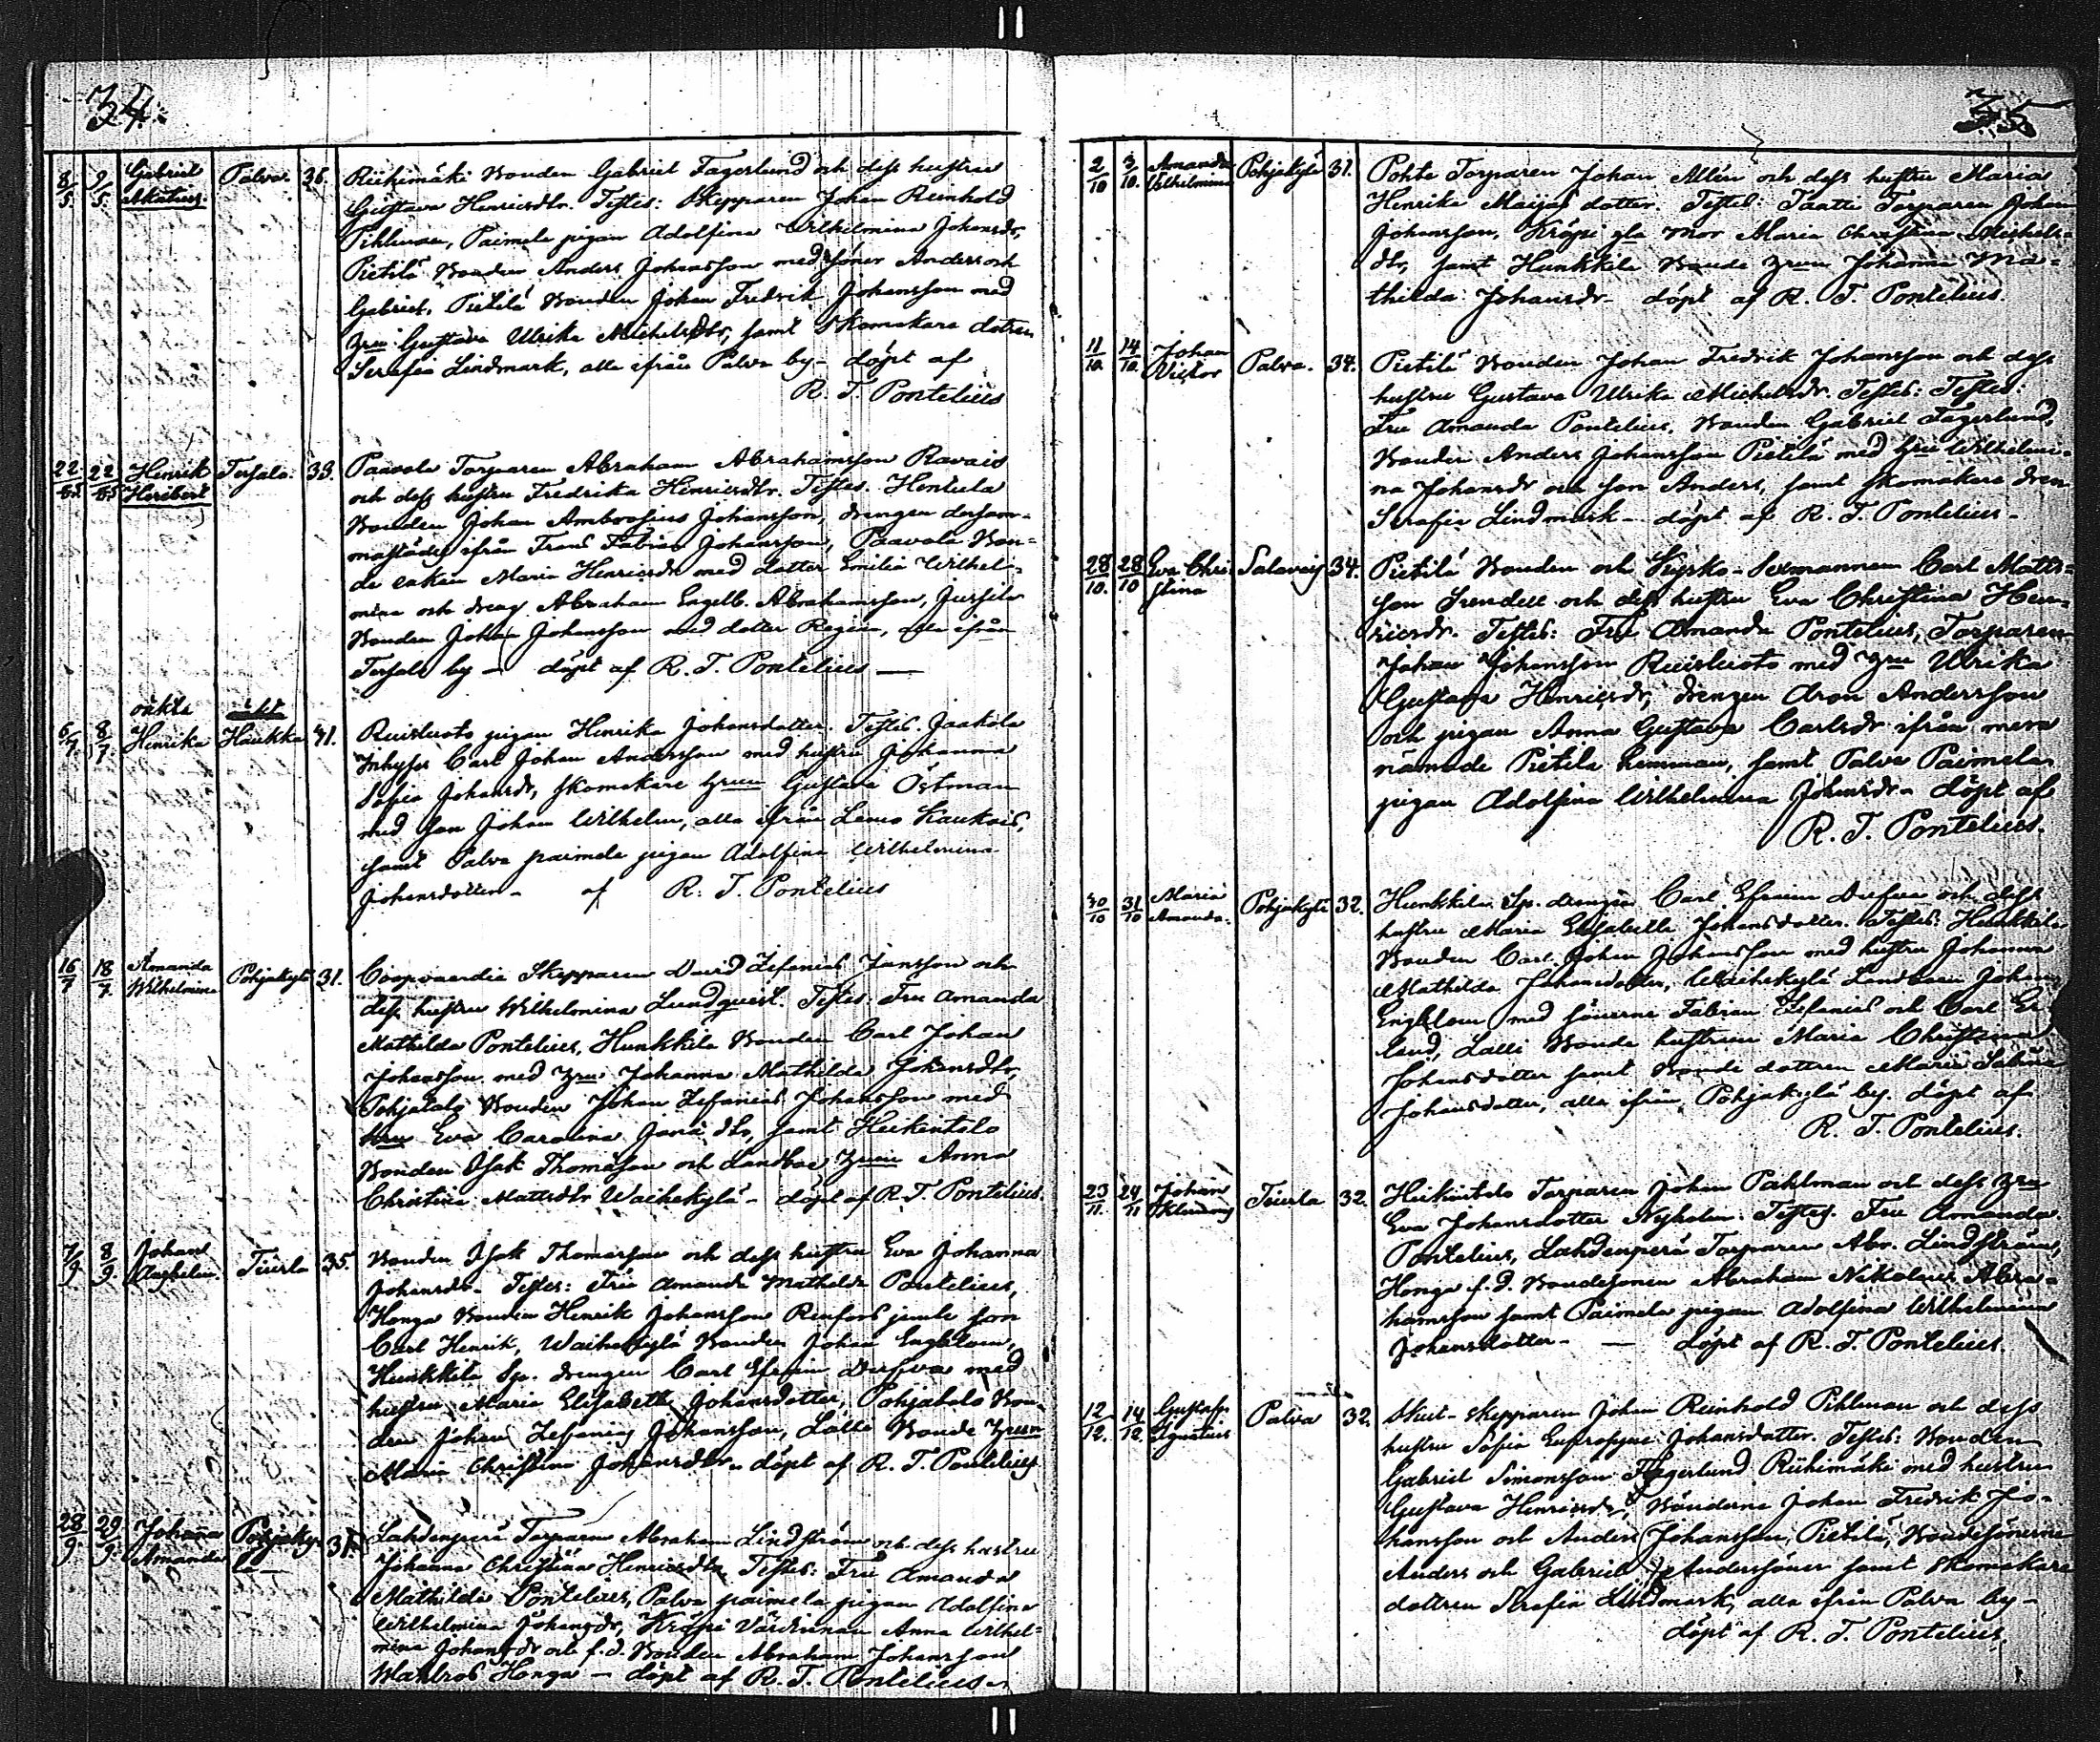 34.
8/5. 9/5. Gabriel Akatius. Palva. 36. Riihimäki Bonden Gabriel Fagerlund och dess hustru
Gustava Henricsdtr. Testes: Skepparen Johan Reinhold
Pihlman, Paimela pigan Adolfina Wilhelmina Johansdr,
Pietilä Bonden Anders Johansson med söner Anders och
Gabriel, Pietilä Bonden Johan Fredrik Johansson med
hru Gustava Ulrika Michelsdtr, samt Skomakare dotren
Serafia Lindmark, alla ifrån Palva by – döpt af
R. T. Pontelius
22/5. 22/5 Henrik Heribert Tersalo. 33. Paavola Torparen Abraham Abrahamsson Ravais
och dess hustru Fredrika Henricsdtr. Testes. Hentula
Bonden Johan Ambrosius Johansson, drengen dersam-
mastädes ifrån Frans Fabian Johansson, Paavola Bon-
de enkan Maria Henricsdr med dotter Emilia Wilhel-
mina och dreng Abraham Engelb. Abrahamsson, Jussila
Bonden Johan Johansson med dotter Regina, alla ifrån
Tersalo by – döpt af R. T. Pontelius –
6/7. 8/7. oäkta Henrika Haukka 41. Ruisluoto pigan Henrika Johansdotter. Testes. Jaakola
Inhyses Carl Johan Andersson med hustru Johanna
Sofia Johansdr, skomakare hrun Gustava Östman
med son Johan Wilhelm, alla ifrån Lemo Kaukois,
samt Palva paimela pigan Adolfina Wilhelmina
Johansdotter – af R. T. Pontelius
16/7 18/7. Amanda Wilhelmina Pohjakylä 31. Coopvaerdie Skepparen David Zefanias Jansson och
dess hustru Wilhelmina Lundqvist. Testes: Fru Amanda
Mathilda Pontelius, Hunkkila Bonden Carl Johan
Johansson med hru Johanna Mathilda Johansdtr,
Pohjatalo Bonden Johan Zefanias Johansson med
hru Eva Carolina Jona dtr, samt Heikintalo
Bonden Isak Thomasson och Landboe hrun Anna
Christina Mattsdtr Waihekylä – döpt af R. T. Pontelius.
7/9. 8/9. Johan Teiersla 35. Bonden Isak Thomasson och dess hustru Eva Johanna
Johansdr. Testes: Fru Amanda Mathilda Pontelius,
Honga Bonden Henrik Johansson Renfors jemte son
Carl Henrik, Waihekylä Bonden Johan Engblom,
Hunkkila Sp. drengen Carl Efraim Dufva med
hustru Maria Elisabeth Johansdotter, Pohjatalo Bon-
den Johan Zefanias Johansson, Lalli Bonde hrun
Maria Christina Johansdtr – döpt af R. T. Pontelius
28/9 29/9. Johanna Amanda Pohjaky-
lä – 37. Lahdenperä Torparen Abraham Lindström och dess hustru
Johanna Christina Henricsdtr Testes: Fru Amanda
Mathilda Pontelius, Palva paimela pigan Adolfina
Wilhelmina Johansdr, Kröpi Värdinnan Anna Wilhel-
mina Johansdr och f.d. Bonden Abraham Johansson
Honga – döpt af R. T. Pontelius –
35
2/10 3/10. Amanda Wilhelmina Pohjakylä 31. Pohto Torparen Johan Allén och dess hustru Maria
Henrika Maijas dotter. Testes: Taatti Torparen Johan
Johansson, Kröpi gla mor Maria Christina Michels-
dtr, samt Hunkkila Bonde hrun Johanna Ma-
thilda Johansdr – döpt af R. T. Pontelius.
11/10. 14/10. Johan Victor Palva. 34. Pietilä Bonden Johan Fredrik Johansson och dess
hustru Gustava Ulrika Michelsdr. Testes: Testes:
Fru Amanda Pontelius, Bonden Gabriel Fagerlund,
Bonden Anders Johansson Pietilä med hru Wilhelmi-
na Johansdr och son Anders, samt skomakare dren
Serafia Lindmark – döpt af R. T. Pontelius –
28/10. 28/10 Eva Chri-
stina Salavais 34. Pietilä Bonden och Kyrko-Sexmannen Carl Matts-
son Grendell och dess hustru Eva Christina Hen-
ricsdr. Testes: Fru Amanda Pontelius, Torparen
Johan Johansson Ruisluoto med hru Ulrika
Gustava Henricsdr, drengen Aron Andersson
och pigan Anna Gustava Carlsdr ifrån mera
nämnde Pietilä hemman, samt Palva Paimela
pigan Adolfina Wilhelmina Johansdr – döpt af
R. T. Pontelius.
30/10 31/10 Maria Amanda. Pohjakylä 32. Hunkkila Sp. drengen Carl Efraim Dufva och dess
hustru Maria Elisabeth Johansdotter. Testes: Hunkkila
Bonden Carl Johan Johansson med hustru Johanna
Mathilda Johansdotter, Waihekylä Landboen Johan
Engblom med sönerne Fabian Zefanias och Carl Er-
land, Lalli Bonde hustrun Maria Christina
Johansdotter samt Bonde dottren Maria Sabina
Johansdotter, alla ifrån Pohjakylä by. döpt af
R. T. Pontelius.
23/11. 24/11 Johan Klemens Teiersla 32. Heikintalo Torparen Johan Pahlman och dess hru
Eva Johansdotter Nyholm. Testes. Fru Amanda
Pontelius, Lahdenperä Torparen Abr. Lindström,
Honga f.d. Bondesonen Abraham Nikolaus Abra-
hamsson samt Paimela pigan Adolfina Wilhelmina
Johansdotter – – döpt af R. T. Pontelius.
12/12. 14/12. Gustaf Ignatius Palva 32. Skut-skepparen Johan Reinhold Pihlman och dess
hustru Sofia Eufrosyne Johansdotter. Testes: Bonden
Gabriel Simonsson Fagerlund Riihimäki med hustru
Gustava Henricsdr, Bönderne Johan Fredrik Jo-
hansson och Anders Johansson, Pietilä, Bondesönerne
Anders och Gabriel Anderssöner samt Skomakare
dottren Serafia Lindmark, alla ifrån Palva by –
döpt af R. T. Pontelius.